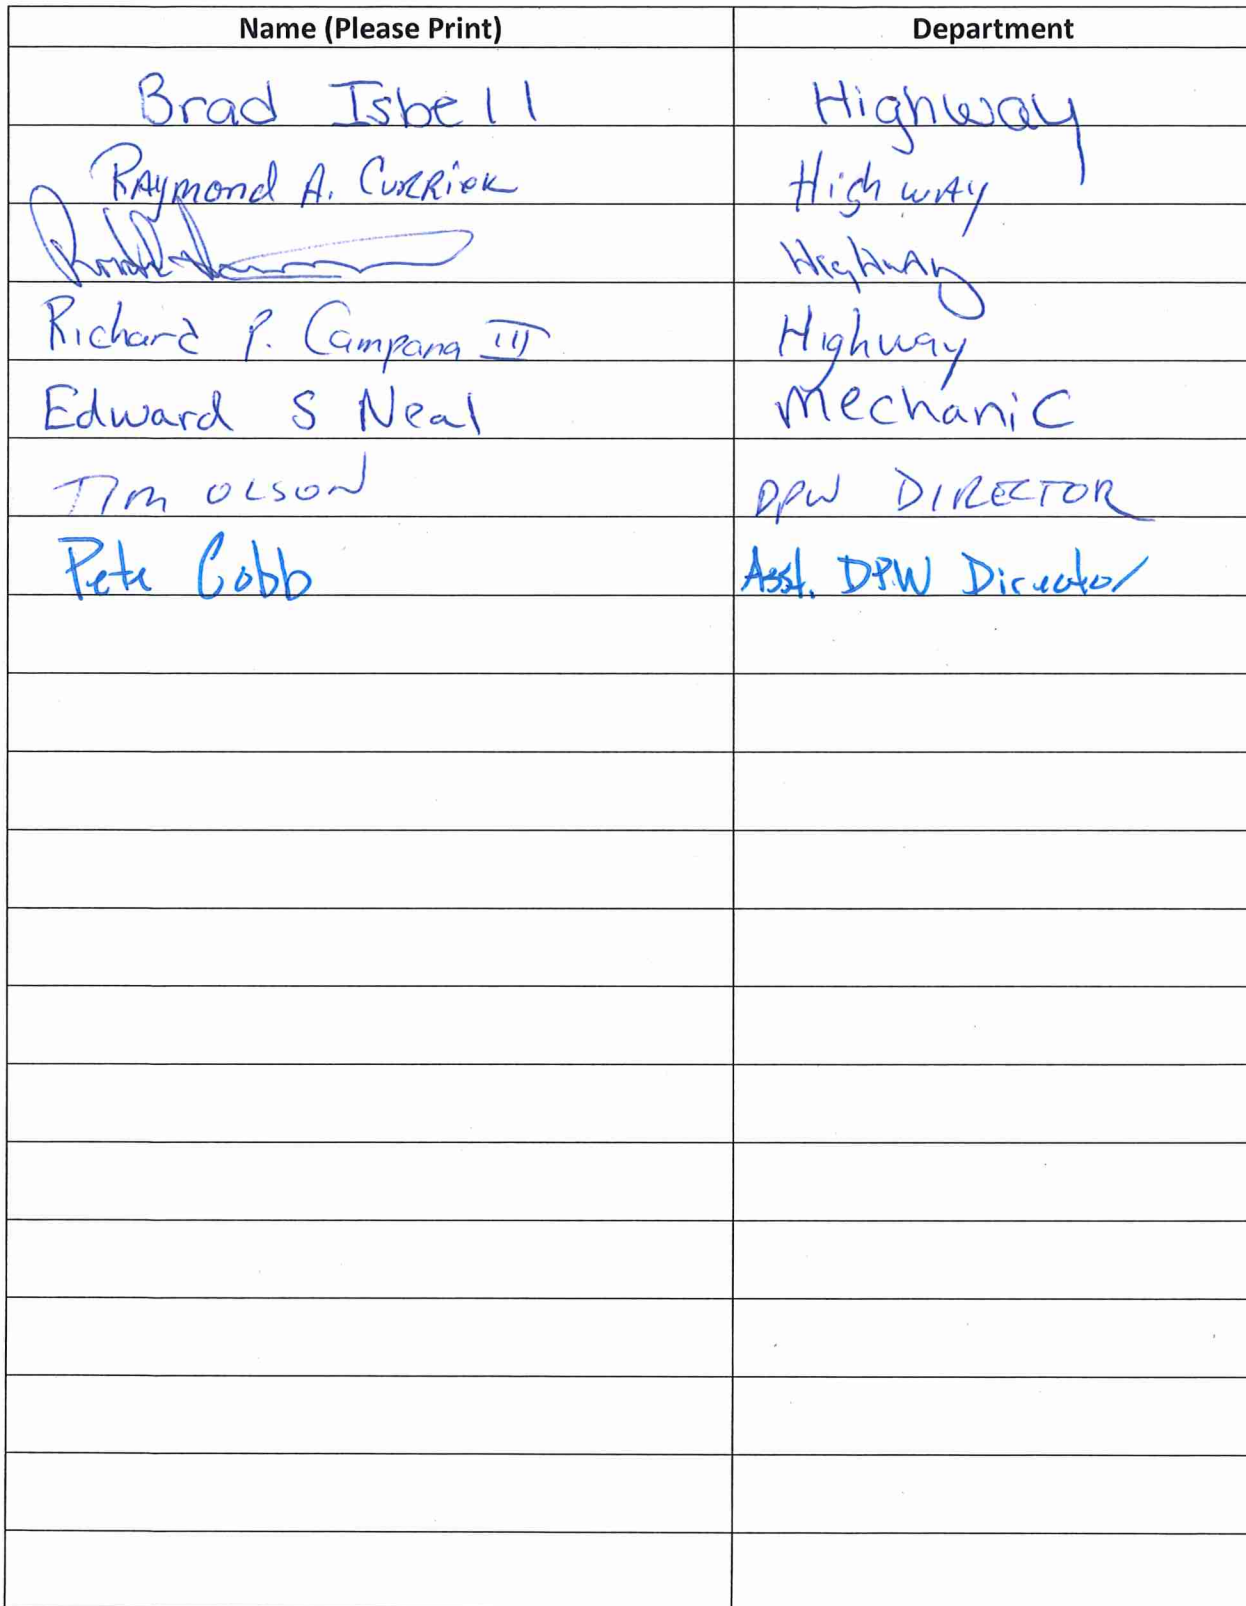 Name (Please Print) Department
Brad Isbell Highway
RAymond A. Highway
Highway
Richard P. Campana III Highway
Edward S Neal Mechanic
Tim OLSON DPW DIRECTOR
Pete Cobb Asst. DPW Director